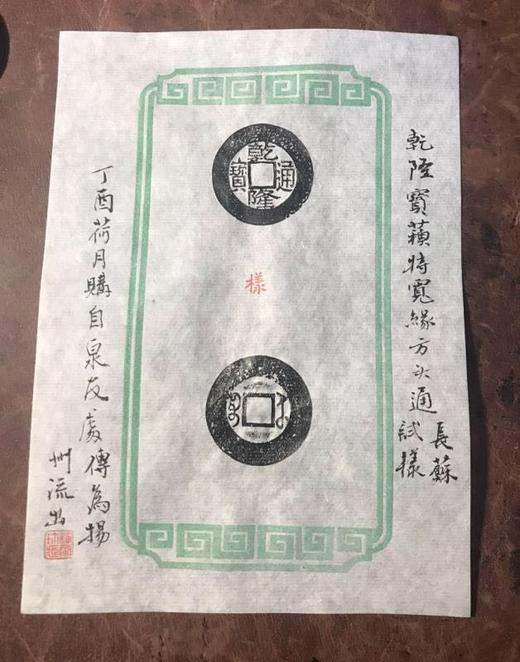 乾隆寶蘇特寬緣方头通
長蘇
試樣
乾隆通寶
樣
丁酉荷月購自泉友處傳為揚
州流出